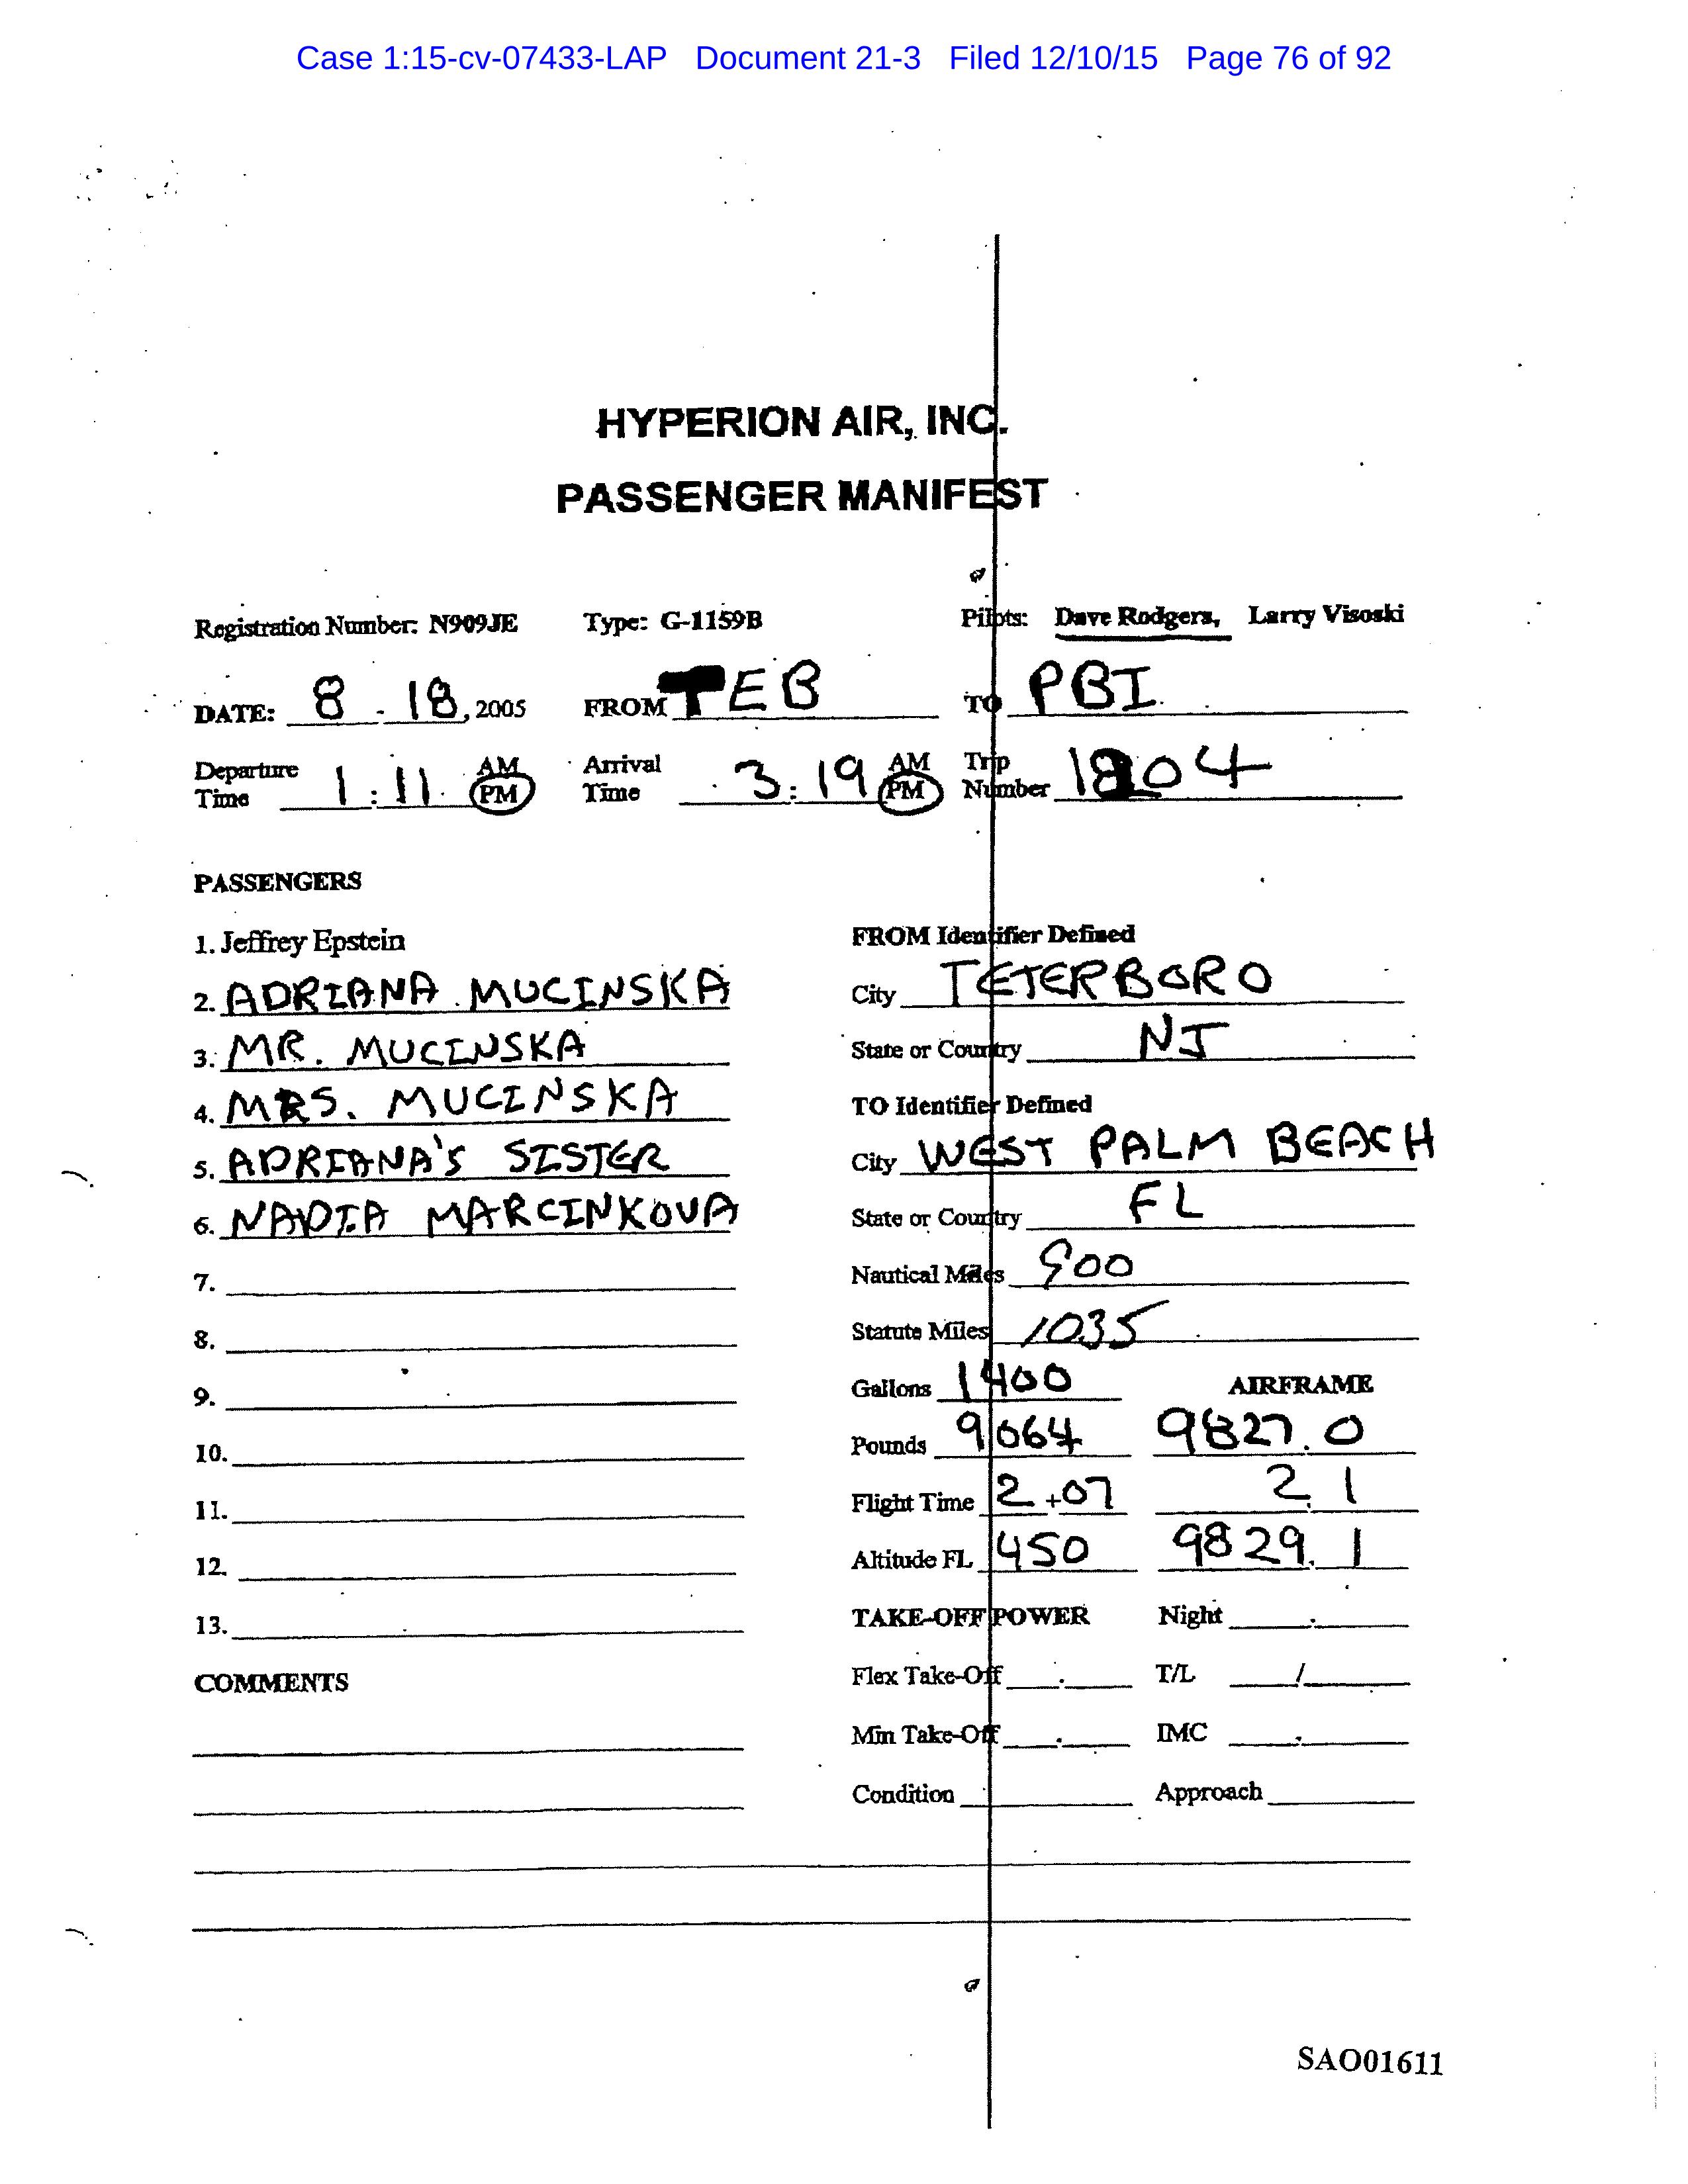 Case 1:15-cv-07433-LAP Document 21-3 Filed 12/10/15 Page 76 of 92
HYPERION AIR, INC.
PASSENGER MANIFEST
Registration Number: N909JE Type: G-1159B Pilots: Dave Rodgers, Larry Visoski
DATE: 8 - 18, 2005 FROM TEB TO PBI
Departure Time 1:11 AM PM Arrival Time 3:19 AM PM Trip Number 1804
PASSENGERS
1. Jeffrey Epstein
2. ADRIANA MUCINSKA
3. MR. MUCINSKA
4. MRS. MUCINSKA
5. ADRIANA'S SISTER
6. NADIA MARCINKOVA
7.
8.
9.
10.
11.
12.
13.
COMMENTS
FROM Identifier Defined
City TETERBORO
State or Country NJ
TO Identifier Defined
City WEST PALM BEACH
State or Country FL
Nautical Miles 900
Statute Miles 1035
Gallons 1400 AIRFRAME
Pounds 9064 9827.0
Flight Time 2+07 2.1
Altitude FL 450 9829.1
TAKE-OFF POWER Night .
Flex Take-Off . T/L /
Min Take-Off . IMC .
Condition Approach
SAO01611